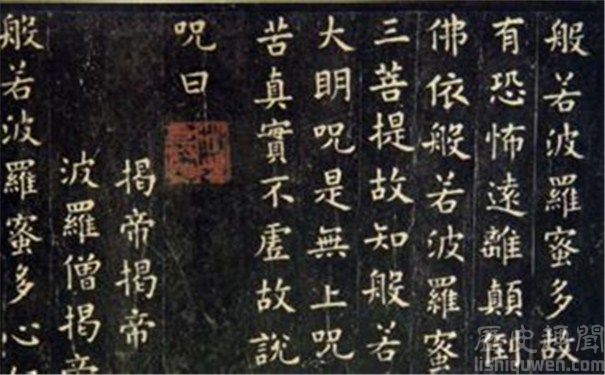 般若波羅蜜多故
有恐怖遠離顛倒
佛依般若波羅蜜
三菩提故知般若
大明呪是無上呪
苦真實不虛故說
呪曰
揭帝揭帝
波羅僧揭帝
般若波羅蜜多心
歷史趣聞
lishiquwen.com